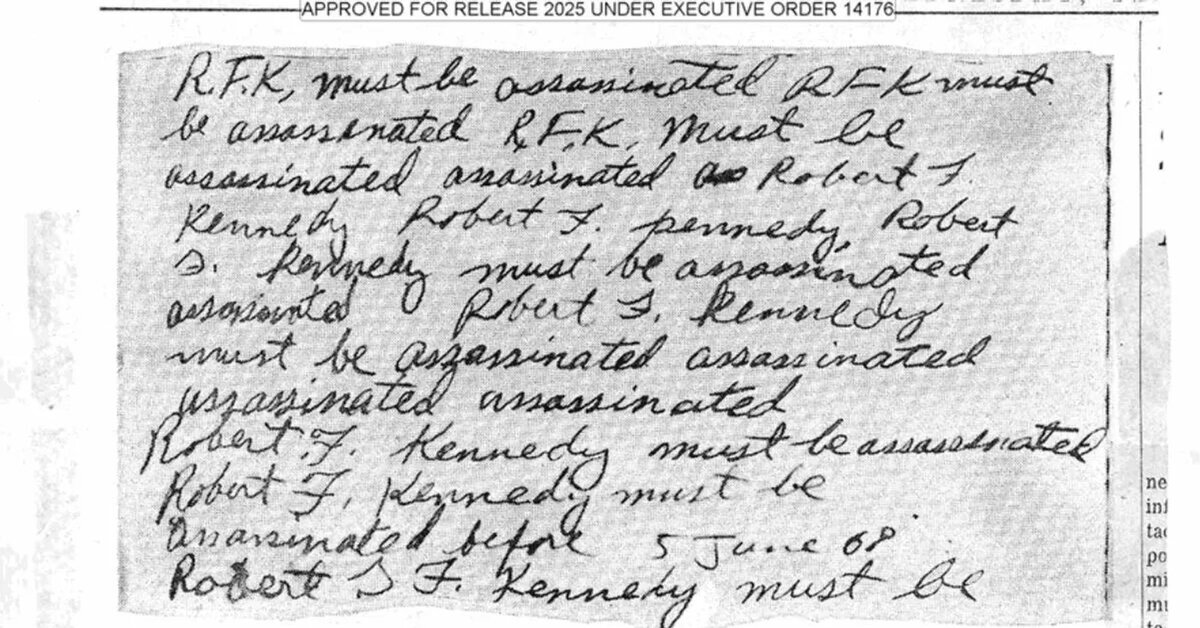 APPROVED FOR RELEASE 2025 UNDER EXECUTIVE ORDER 14176
R.F.K, must be assassinated R F K must
be assassenated R.F.K. Must be
assassinated assassinated as Robert F.
Kennedy Robert F. pennedy, Robert
F. Kennedy must be assassinated
assassinted Robert F. Kennedy
must be assassinated assassinated
assassinated assassinated
Robert F. Kennedy must be assassenated
Robert F, Kennedy must be
assassinated before 5 June 68
Robert F. Kennedy must be
ne
inf
tac
po
mi
mu